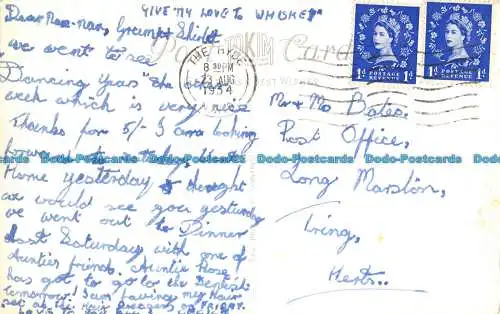 GIVE MY LOVE TO WHISKEY
Dear Nan-nan,
we went to see
Dancing years" the other
week which is very nice
Thanks for 5/- I am looking
Home yesterday I thought
we would see you yesturday
we went out to Dinner
last Saturday with one of
Aunties friends Auntie Rose!
has got to go to the Dentist
tomorrow! I am having my Hair
Post Card
TOKIM
THE HYDE
8 30 PM
23 AUG
1954
POSTAGE REVENUE
1D 1D
POSTAGE REVENUE
1D 1D
Mr & Mrs Bates.
Post Office,
Long Marston,
Tring,
Herts.
Dodo-Postcards Dodo-Postcards Dodo-Postcards Dodo-Postcards Dodo-Postcards